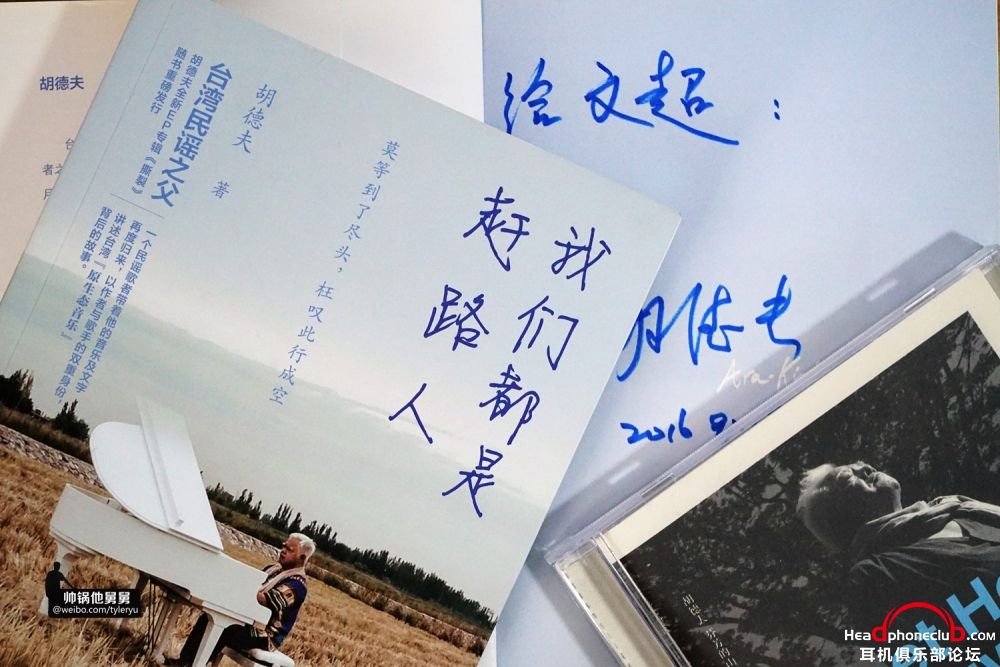 胡德夫
台湾民谣之父
胡德夫全新EP专辑《撕裂》
随书重磅发行
胡德夫 著
一个民谣歌者带着他的音乐及文字
再度归来,以作者与歌手的双重身份,
讲述台湾“原生态音乐”
背后的故事。
莫等到了尽头,枉叹此行成空
我们都是
赶路人
给文超:
胡德夫
Ara-Ki
2016
帅锅他舅舅
@weibo.com/tyleryu
Headphoneclub.com
耳机俱乐部论坛